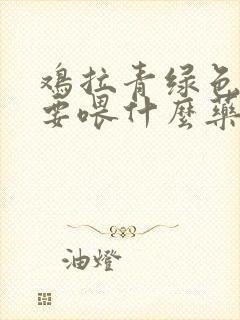 鸡拉青绿色
要喂什麼藥
油燈